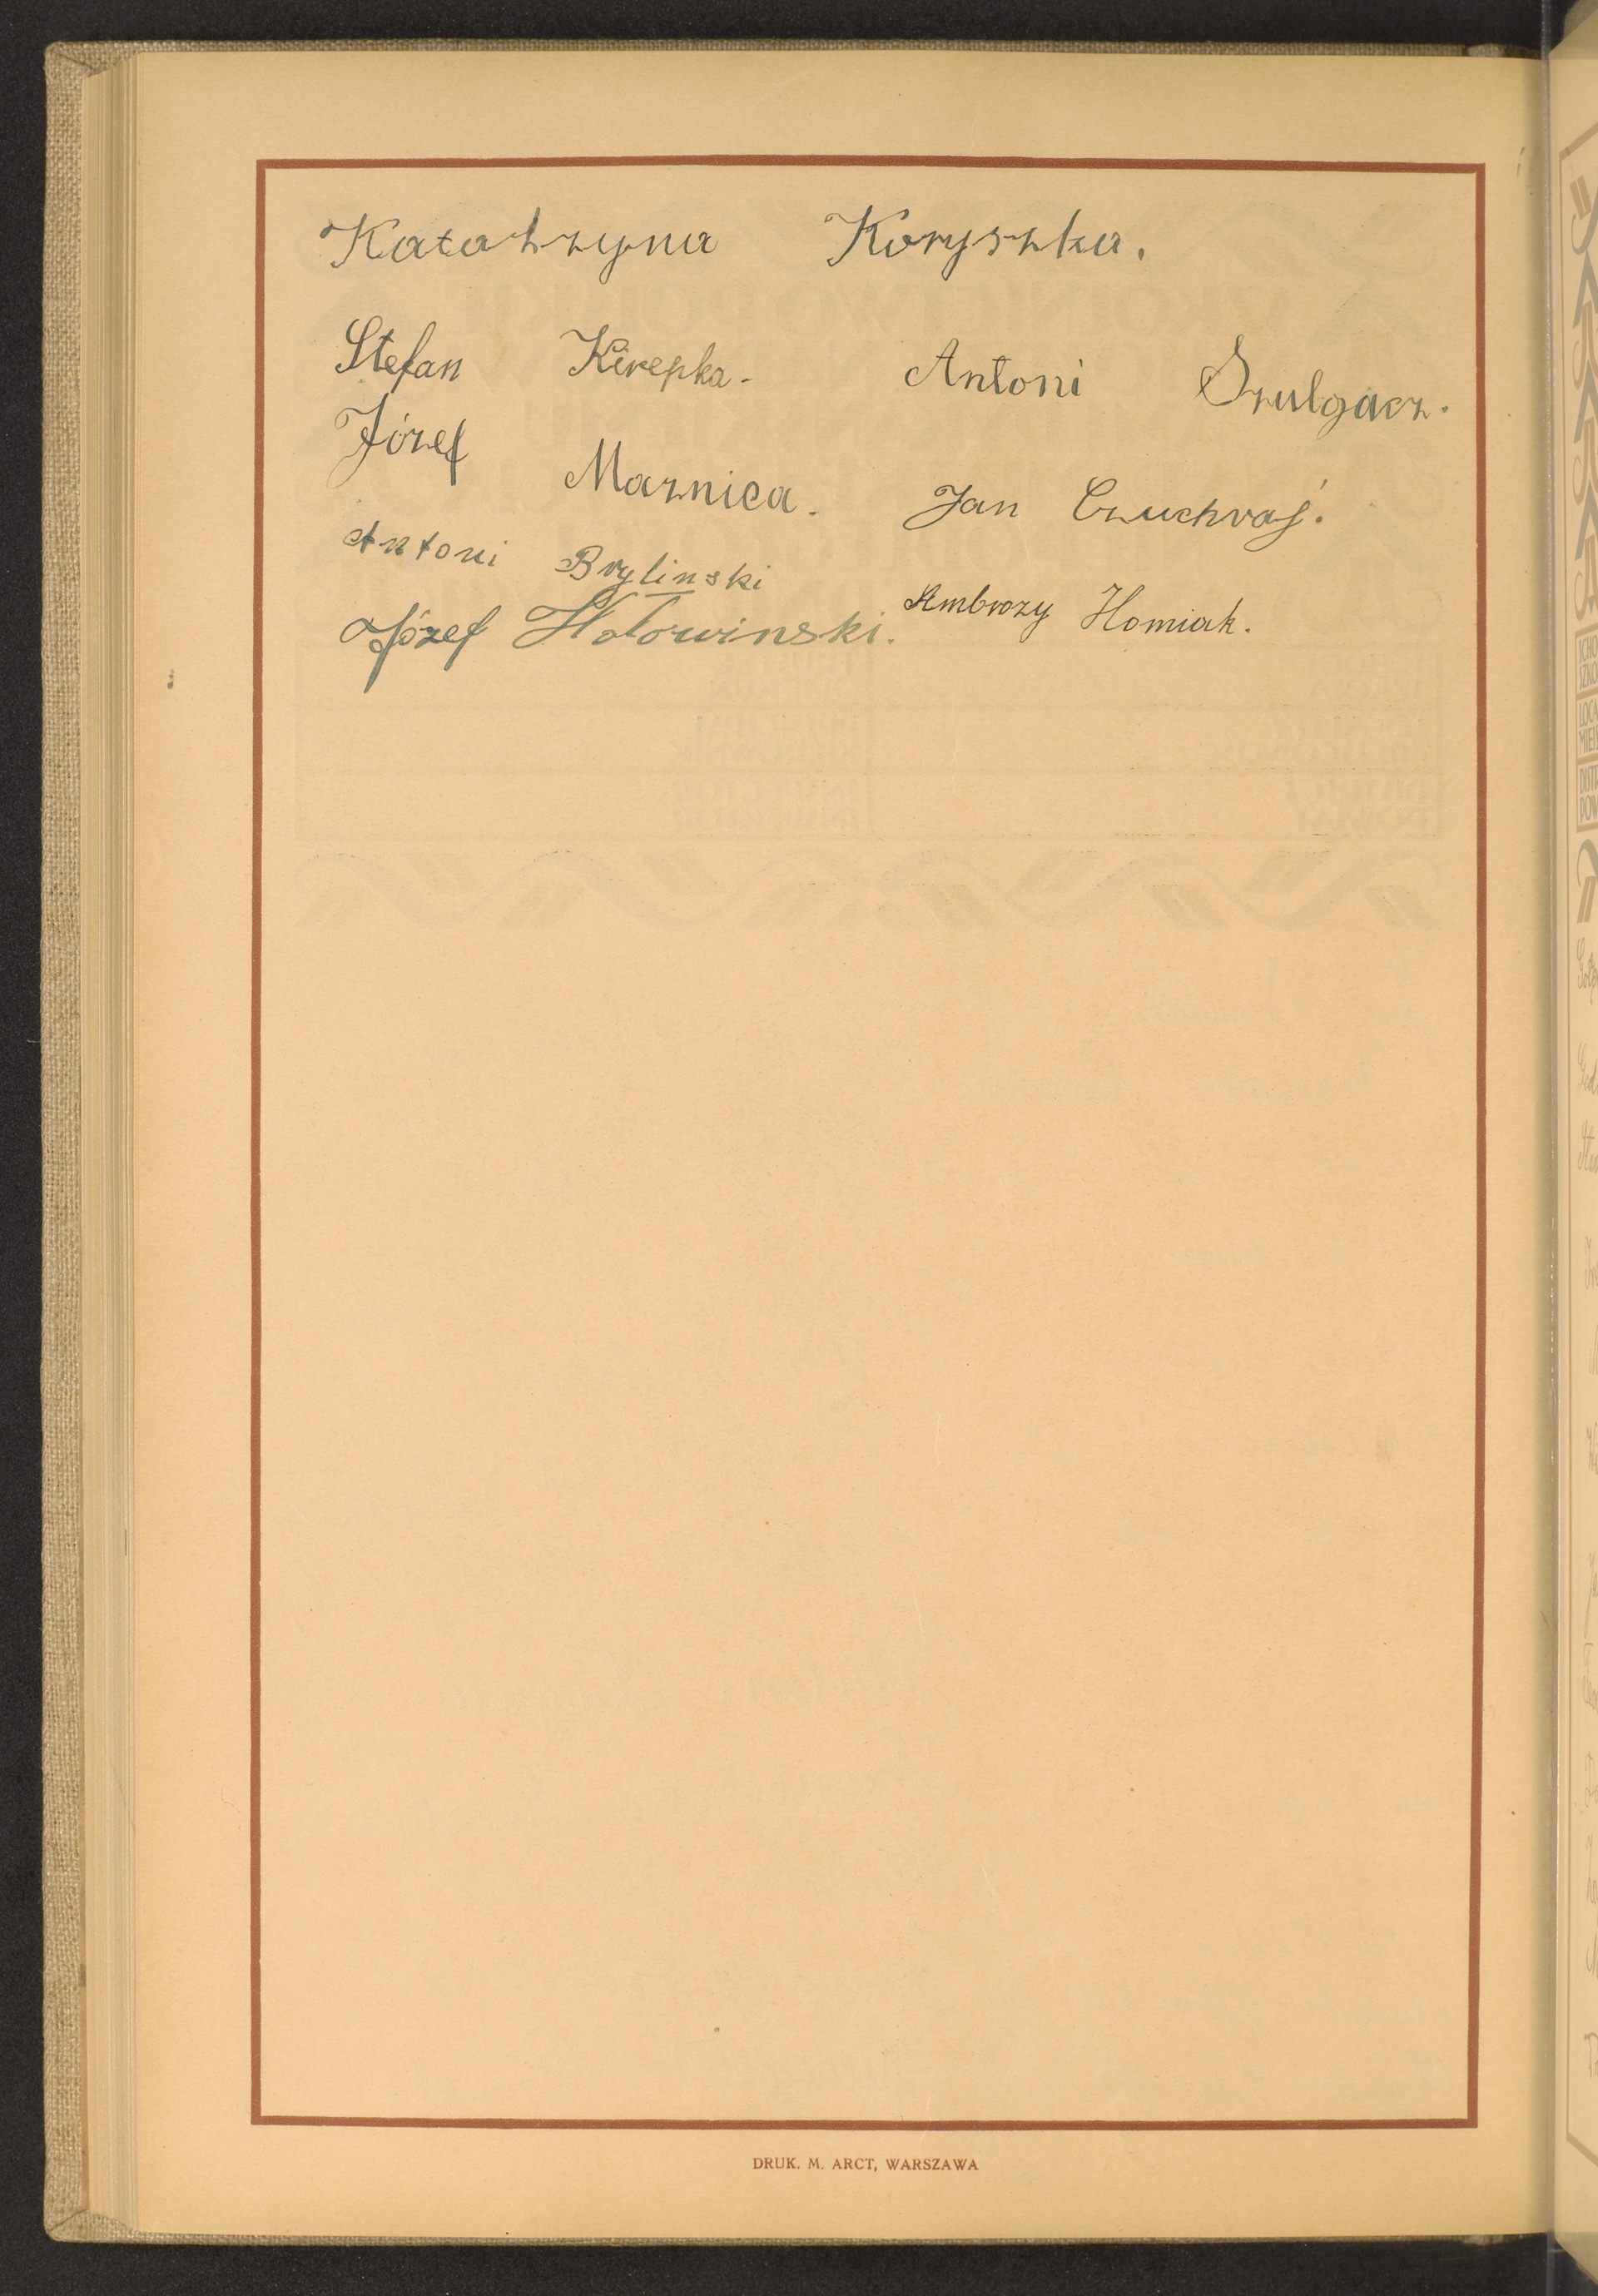 Katarzyna Koryszka.
Stefan Kirepka. Antoni Szulgacz.
Józef Maznica. Jan Czuchraj.
Antoni Brylinski
Józef Hołowinski. Ambrozy Homiak.
DRUK. M. ARCT, WARSZAWA